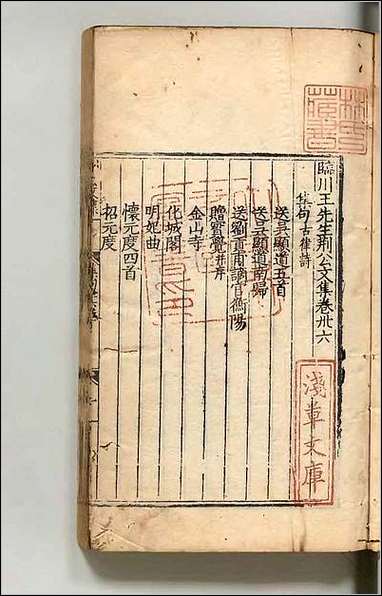 臨川王先生荆公文集卷卅六
集句 古律詩
送吳顯道五首
送吳顯道南歸
送劉貢甫謫官衡陽
贈寳覺并序
金山寺
化城閣
明妃曲
懷元度四首
招元度
林氏
藏書
淺草文庫